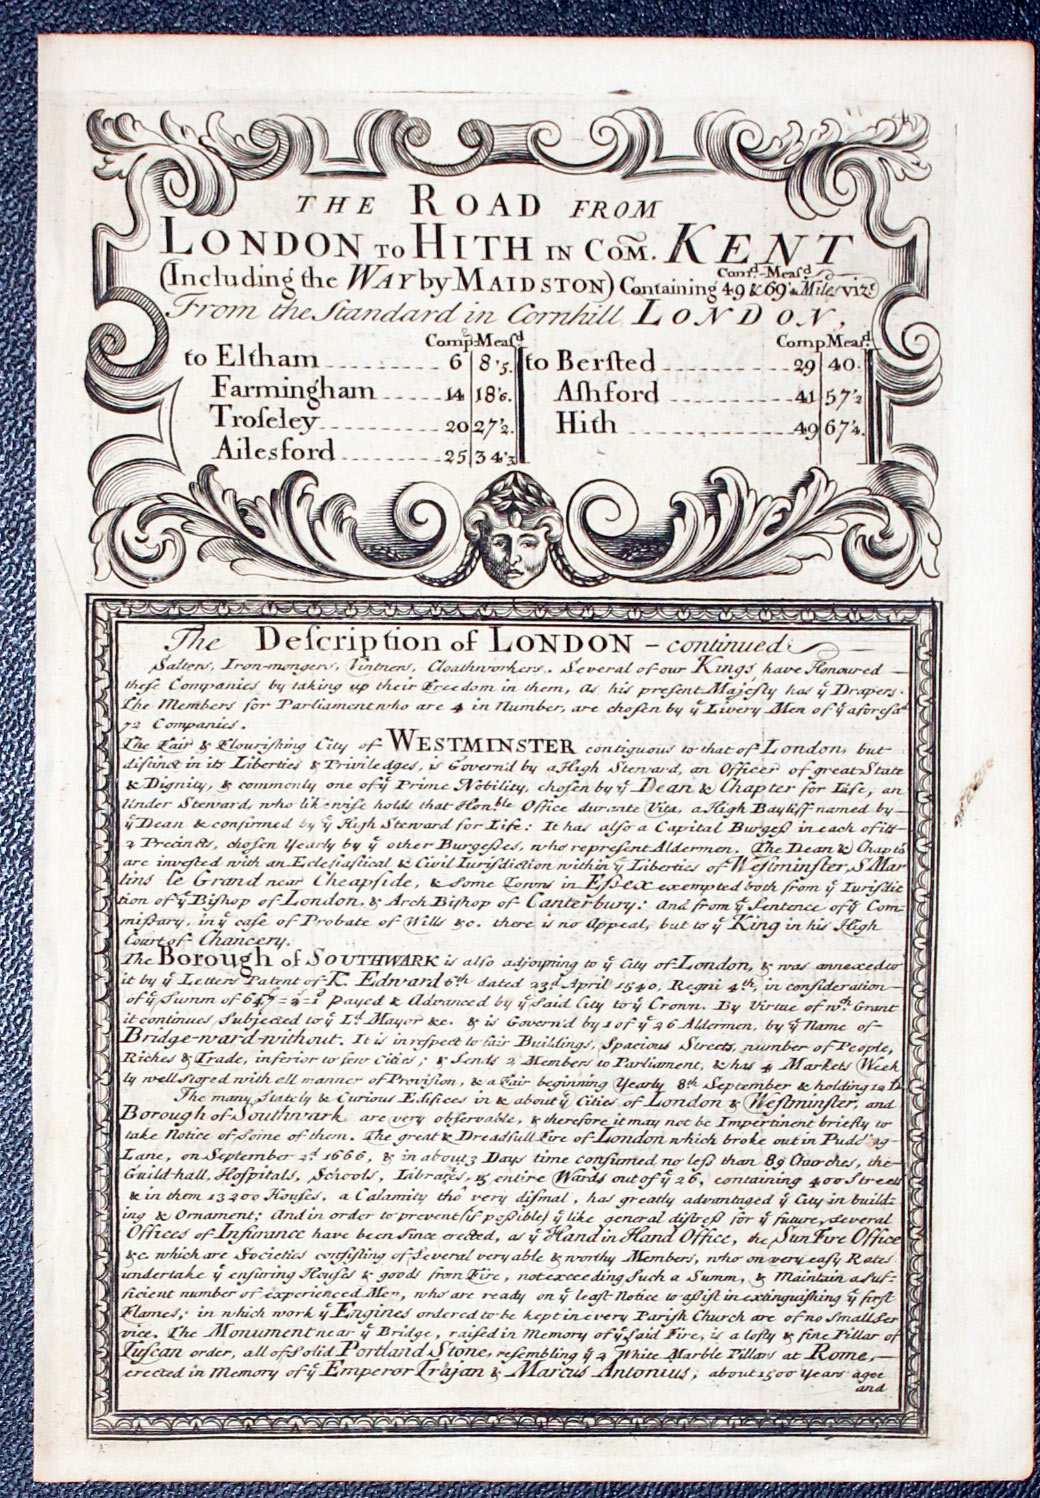 THE ROAD FROM
LONDON TO HITH IN COM. KENT
(Including the WAY by MAIDSTON) Containing 49 & 69¼ Miles vizt.
Comp.d Meas.d
From the Standard in Cornhill LONDON,
Comp. Meas.d Comp. Meas.d
to Eltham 6 8'5. to Bersted 29 40.
Farmingham 14 18'6. Ashford 41 57'2
Troſeley 20 27'2. Hith 49 67'4.
Ailesford 25 34'3
The Deſcription of LONDON – continued
Salters, Iron-mongers, Vintners, Cloathworkers. Several of our Kings have Honoured
theſe Companies by taking up their Freedom in them, as his preſent Majeſty has yͤ Drapers.
The Members for Parliament who are 4 in Number, are choſen by yͤ Livery Men of yͤ aforesᵈ
72 Companies.
The Fair & Flouriſhing City of WESTMINSTER contiguous to that of London, but
diſtinct in its Liberties & Priviledges, is Govern'd by a High Steward, an Officer of great State
& Dignity, & commonly one of yͤ Prime Nobility, choſen by yͤ Dean & Chapter for Life, an
Under Steward, who likewiſe holds that Honble Office durante Vita, a High Bayliff named by
yͤ Dean & confirmed by yͤ High Steward for Life: It has alſo a Capital Burgeſs in each of its
2 Precincts, choſen Yearly by yͤ other Burgeſſes, who repreſent Aldermen. The Dean & Chaptr
are inveſted with an Eccleſiaſtical & Civil Iurisdiction within yͤ Liberties of Weſtminſter, St Mar
tins le Grand near Cheapſide, & Some Towns in Eſſex exempted both from yͤ Iurisdic
tion of yͤ Biſhop of London, & Arch Biſhop of Canterbury: And from yͤ Sentence of yͤ Com
miſſary, in yͤ caſe of Probate of Wills &c. there is no Appeal, but to yͤ King in his High
Court of Chancery.
The Borough of SOUTHWARK is alſo adjoyning to yͤ City of London, & was annexed to
it by yͤ Letters Patent of K. Edward 6th dated 23d April 1540, Regni 4th, in conſideration
of yͤ Summ of 647=2=1 payed & Advanced by yͤ Said City to yͤ Crown. By Virtue of wch Grant
it continues Subjected to yͤ Ld Mayor &c. & is Govern'd by 1 of yͤ 26 Aldermen, by yͤ Name of
Bridge-ward-without. It is in respect to fair Buildings, Spacious Streets, number of People,
Riches & Trade, inferior to few Cities; & Sends 2 Members to Parliament, & has 4 Markets Week
ly well Stored with all manner of Proviſion, & a Fair beginning Yearly 8th September & holding 14 Ds
The many Stately & Curious Edifices in & about yͤ Cities of London & Weſtminſter, and
Borough of Southwark are very obſervable, & therefore it may not be Impertinent briefly to
take Notice of Some of them. The great & Dreadfull Fire of London which broke out in Pudding
Lane, on September 2d 1666, & in about 3 Days time conſumed no leſs than 89 Churches, the
Guild-hall, Hoſpitals, Schools, Libraries, & entire Wards out of yͤ 26, containing 400 Streets
& in them 13200 Houſes, a Calamity tho' very diſmal, has greatly advantaged yͤ City in build
ing & Ornament; And in order to prevent (if poſſible) yͤ like general diſtreſs for yͤ future, ſeveral
Offices of Inſurance have been Since erected, as yͤ Hand in Hand Office, the Sun Fire Office
&c. which are Societies conſiſting of Several very able & worthy Members, who on very eaſy Rates
undertake yͤ enſuring Houſes & goods from Fire, not exceeding Such a Summ, & Maintain a Suf-
ficient number of experienced Men, who are ready on yͤ leaſt Notice to aſſiſt in extinguiſhing yͤ firſt
Flames; in which work yͤ Engines ordered to be kept in every Pariſh Church are of no Small Ser
vice. The Monument near yͤ Bridge, raiſed in Memory of yͤ Said Fire, is a lofty & fine Pillar of
Tuſcan order, all of Solid Portland Stone, reſembling yͤ 2 White Marble Pillars at Rome,
erected in Memory of yͤ Emperor Trajan & Marcus Antonius, about 1500 Years agoe
and